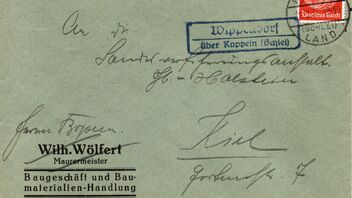 An die
Wippendorf
über Kappeln (Schlei)
Deutsches Reich
(SCHLEI)
LAND
Landesversicherungsanstalt
Holstein
Herrn
Kiel
7
Wilh. Wölfert
Maurermeister
Baugeschäft und Bau-
materialien-Handlung